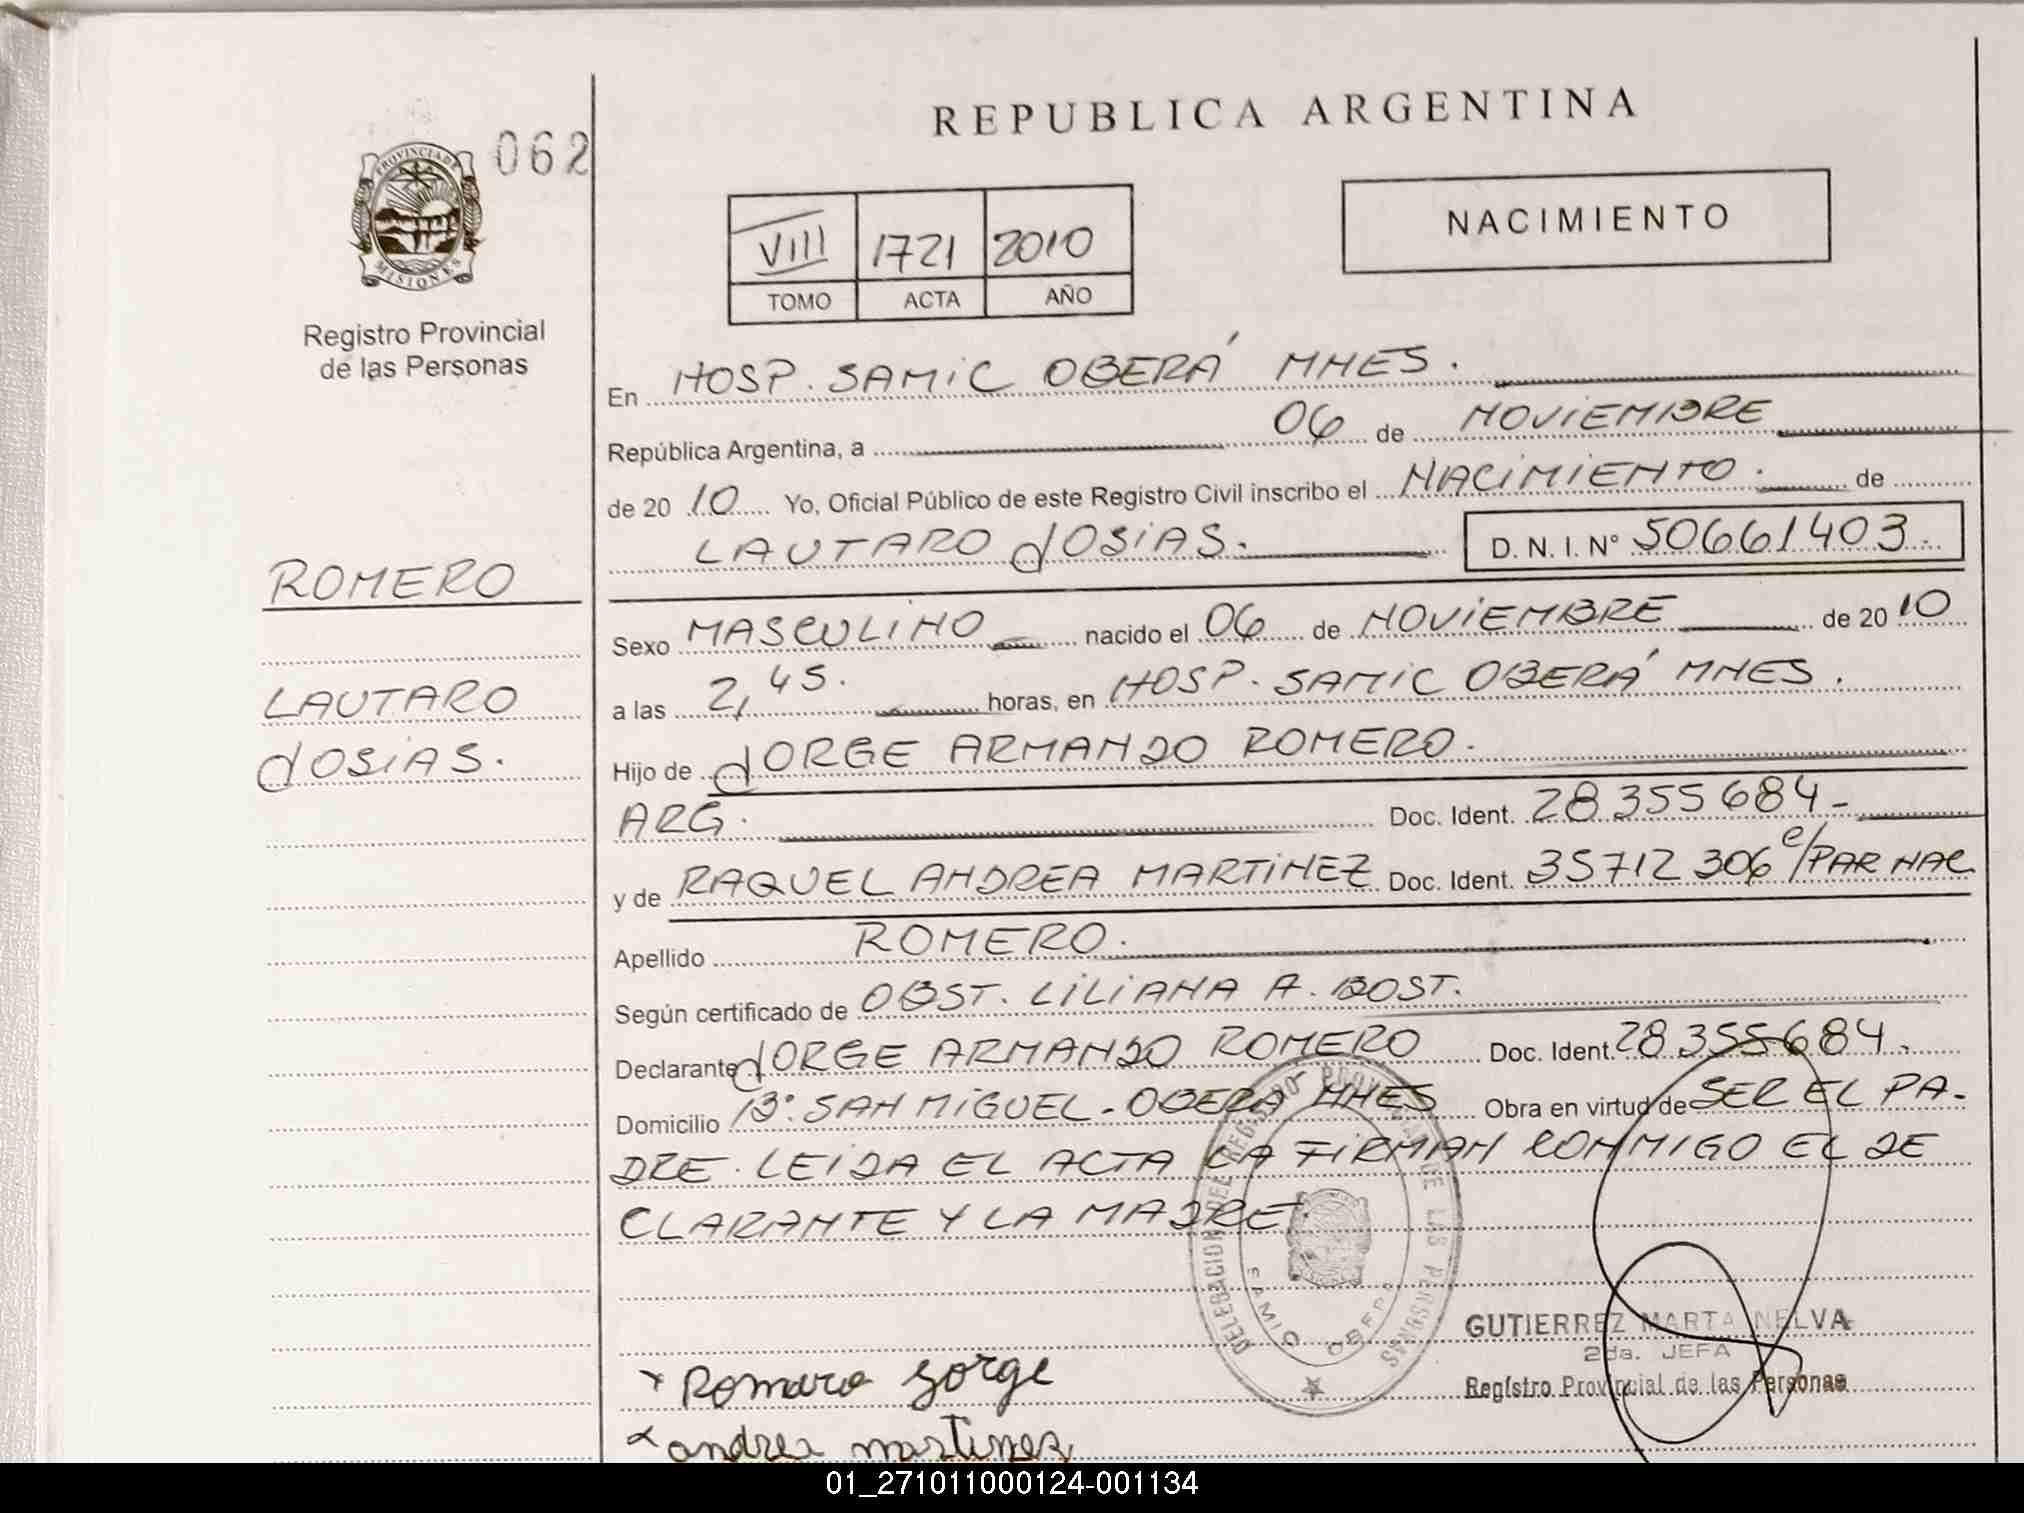 REPUBLICA ARGENTINA
062
PROVINCIA DE
MISIONES
Registro Provincial
de las Personas
VIII 1721 2010
TOMO ACTA AÑO
NACIMIENTO
En HOSP. SAMIC OBERÁ MNES.
República Argentina, a 06 de NOVIEMBRE
de 20 10 Yo, Oficial Público de este Registro Civil inscribo el NACIMIENTO. de
LAUTARO JOSIAS. D. N. I. N° 50661403.
ROMERO
LAUTARO
JOSIAS.
Sexo MASCULINO nacido el 06 de NOVIEMBRE de 20 10
a las 2,45. horas, en HOSP. SAMIC OBERÁ MNES.
Hijo de JORGE ARMANDO ROMERO.
ARG. Doc. Ident. 28355684-
y de RAQUEL ANDREA MARTINEZ Doc. Ident. 35712306 e/PAR NAC
Apellido ROMERO.
Según certificado de OBST. LILIANA A. BOST.
Declarante JORGE ARMANDO ROMERO Doc. Ident. 28355684.
Domicilio B° SAN MIGUEL - OBERÁ MNES Obra en virtud de SER EL PA-
DRE. LEIDA EL ACTA LA FIRMAN CONMIGO EL DE
CLARANTE Y LA MADRE.
DELEGACION DEL REGISTRO PROVINCIAL DE LAS PERSONAS
SAMIC OBERA
GUTIERREZ MARTA NELVA
2da. JEFA
Registro Provincial de las Personas
x Romero Jorge
x andrea martinez
01_271011000124-001134